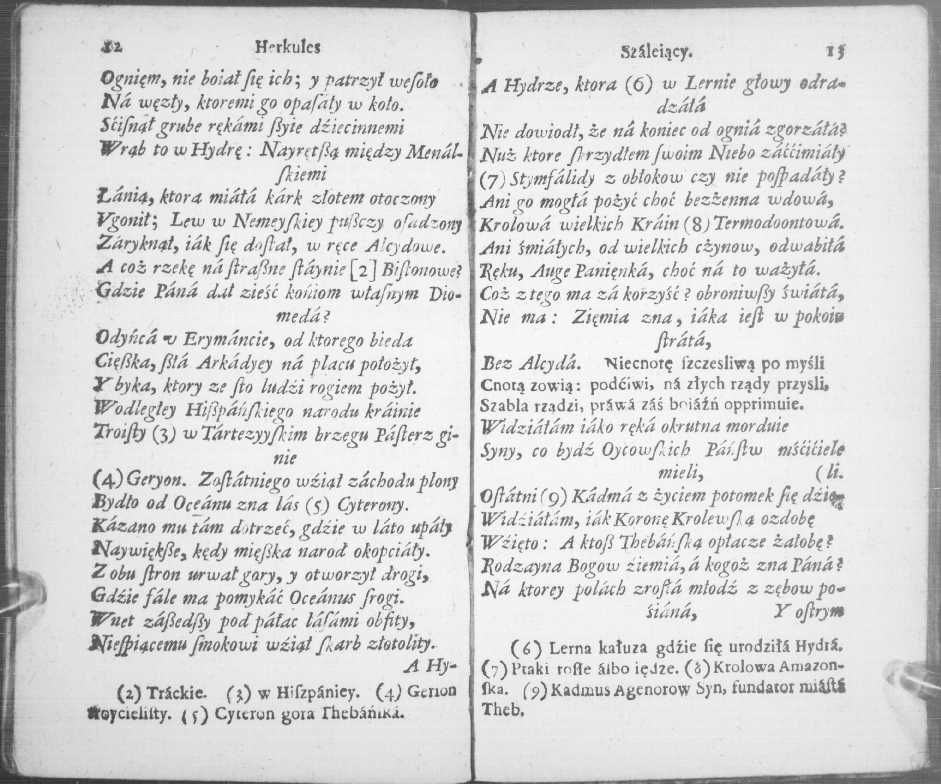 12 Herkules
Ogniem, nie boiał ſię ich; y patrzył weſoło
Ná węzły, ktoremi go opaſáły w koło.
Sćiſnął grube rękámi ßyie dźiecinnemi
Wrąb to w Hydrę: Nayrętßą między Menál-
ſkiemi
Łánią, ktora miáłá kárk złotem otoczony
Vgonił; Lew w Nemeyſkiey pußczy oſadzony
Záryknął, iák ſię doſtał, w ręce Alcydowe.
A coż rzekę ná ſtraßne ſtáynie [2] Biſtonowe?
Gdzie Páná dał zieść końiom właſnym Dio-
medá?
Odyńcá w Erymáncie, od ktorego bieda
Cięßka, ßłá Arkádyey ná placu położył,
Y byka, ktory ze ſto ludźi rogiem pożył.
Wodległey Hißpáńſkiego narodu kráinie
Troiſty (3) w Tártezyyſkim brzegu Páſterz gi-
nie
(4) Geryon. Zoſtátniego wźiął záchodu plony
Bydło od Oceánu zna lás (5) Cyterony.
Kázano mu tám dotrzeć, gdzie w láto upáły
Naywiękße, kędy mięßka narod okopciáły.
Z obu ſtron urwał gory, y otworzył drogi,
Gdźie fále ma pomykáć Oceánus ſrogi.
Wnet záßedßy pod páłac láſámi obfity,
Nieſpiącemu ſmokowi wźiął ſkarb złotolity.
A Hy-
(2) Tráckie. (3) w Hiſzpániey. (4) Gerion
troycieliſty. (5) Cyteron gora Thebáńſka.
Száleiący. 13
A Hydrze, ktora (6) w Lernie głowy odra-
dzáłá
Nie dowiodł, że ná koniec od ogniá zgorzáłá?
Nuż ktore ſkrzydłem ſwoim Niebo záććimiáły
(7) Stymfálidy z obłokow czy nie poſpadáły?
Ani go mogłá pożyć choć bezżenna wdowá,
Krolowá wielkich Kráin (8) Termodoontowá.
Ani śmiáłych, od wielkich cżynow, odwabiłá
Ręku, Auge Panięnká, choć ná to ważyłá.
Coż z tego ma zá korzyść? obroniwßy świátá,
Nie ma: Zięmia zna, iáka ieſt w pokoiu
ſtrátá,
Bez Alcydá. Niecnotę ſzczesliwą po myśli
Cnotą zowią: podćiwi, ná złych rządy przysli,
Szabla rządzi, práwá záś boiáźń opprimuie.
Widziáłám iáko ręká okrutna morduie
Syny, co bydź Oycowſkich Páńſtw mśćićiele
mieli, (li.
Oſtátni (9) Kádmá z życiem potomek ſię dźie-
Widźiáłám, iák Koronę Krolewſką ozdobę
Wźięto: A ktoß Thebáńſką opłacze żałobę?
Rodzayna Bogow źiemiá, á kogoż zna Páná?
Ná ktorey polách zroſtá młodź z zębow po-
śiáná, Y oſtrym
(6) Lerna kałuza gdźie ſię urodziłá Hydrá.
(7) Ptaki roſłe álbo iędze. (8) Krolowa Amazon-
ſka. (9) Kadmus Agenorow Syn, fundator miáſtá
Theb.